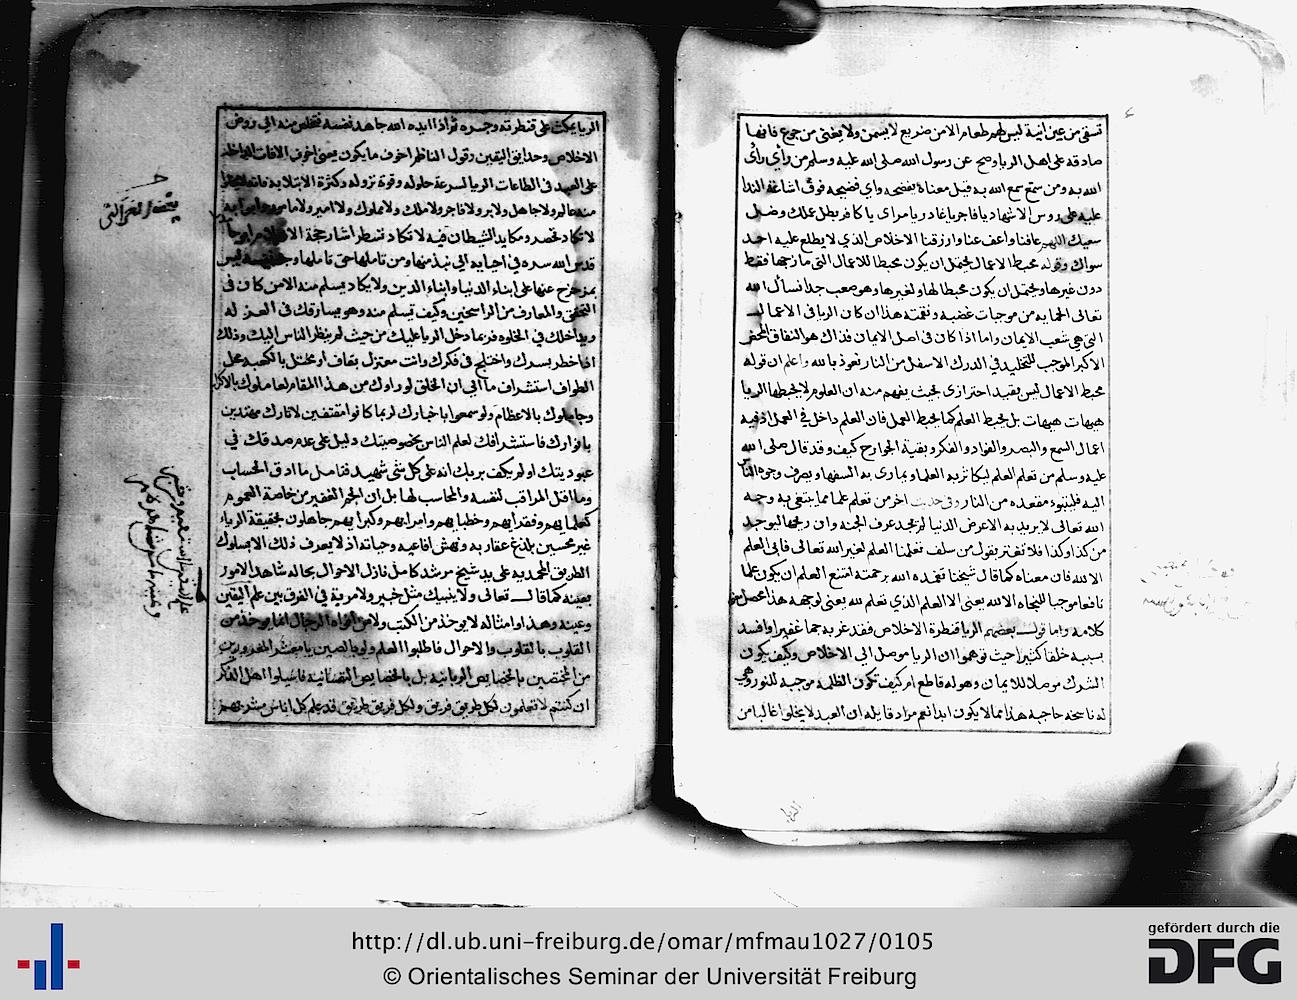 تسقى من عين انية ليس لهم طعام الا من ضريع لا يسمن ولا يغنى من جوع فانها
صادقه على اهل الريا وصح عن رسول الله صلى الله عليه وسلم من رأي رأى
الله به ومن سمع سمع الله به قيل معناه يفضحه واي فضيحه فوق اشاعة الندا
عليه على روس الاشهاد يا فاجر يا غادر يا مراى يا كافر بطل عملك وضل
سعيك اللهم عافنا واعف عنا وارزقنا الاخلاص الذي لا يطلع عليه احد
سواك وقوله محيط الاعمال يحتمل ان يكون محيطا للاعمال التى مازجها فقط
دون غيرها ويحتمل ان يكون محيطا لها ولغيرها وهو صعب جدا نسأل الله
تعالى الحمايه من موجبات غضبه ونقمته هذا ان كان الريا فى الاعمال
التى هى شعب الايمان واما اذا كان فى اصل الايمان فذاك هو النفاق المحض
الاكبر الموجب للتخليد في الدرك الاسفل من النار نعوذ بالله واعلم ان قوله
محيط الاعمال ليس بقيد احترازى بحيث يفهم منه ان العلوم لا يحبطها الريا
هيهات هيهات بل يحبط العلم كما يحبط العمل فان العلم داخل في العمل اذ فيه
اعمال السمع والبصر والفواد والفكر وبقية الجوارح كيف وقد قال صلى الله
عليه وسلم من تعلم العلم ليكاثر به العلما ويمارى به السفها ويصرف وجوه الناس
اليه فليتبوء مقعده من النار وفى حديث اخر من تعلم علما مما يبتغى به وجه
الله تعالى لا يريد به الا عرض الدنيا لم يجد عرف الجنه وان ريحها ليوجد
من كذا وكذا فلا تغتر بقول من سلف تعلمنا العلم لغير الله تعالى فابى العلم
الا لله فان معناه كما قال شيخنا تغمده الله برحمته امتنع العلم ان يكون علما
نافعا موجبا للنجاه الا لله يعنى الا العلم الذي تعلم لله يعنى لوجهه هذا محصل
كلامه واما قول بعضهم الريا قنطرة الاخلاص فقد غر به جما غفيرا وافسد
بسببه خلقا كثيرا حيث توهموا ان الريا موصل الى الاخلاص وكيف يكون
الشرك موصلا للايمان وهو له قاطع ام كيف تكون الظلمه موجبه للنور وهى
له ناسخه حاجبه هذا مما لا يكون ابدا نعم مراد قايله ان العبد لا يخلو غالبا من
الريا
الريا يمكث على قنطرته وجسره ثم اذا ايده الله جاهد نفسه فتخلص منه الى روض
الاخلاص وحدايق اليقين وقول الناظم اخوف ما يكون يعنى اخوف الافات الداخله
على العبد فى الطاعات الريا لسرعة حلوله وقوة نزوله وكثرة الابتلا به
منه عالم ولا جاهل ولا بر ولا فاجر ولا ملك ولا مملوك ولا امير ولا مامور
لا تكاد تحصر ومكايد الشيطان فيه لا تكاد تسطر اشار حجة الاسلام
قدس الله سره في احيايه الى نبذ منها ومن تاملها حق تاملها وجد نفسه ليس
بمزحزح عنها على ابناء الدنيا وابناء الدين ولا يكاد يسلم منه الا من كان فى
التحقق والمعارف من الراسخين وكيف تسلم منه وهو يسارقك فى العزله
ويداخلك فى الخلوه فربما دخل الريا عليك من حيث لم ينظر الناس اليك وذلك
اذا خطر بسرك واختلج فى فكرك وانت معتزل بقاف او مختل بالكعبه محل
الطواف استشراف ما الى ان الخلق لو راوك من هذا المقام لعاملوك بالاكرام
وجاملوك بالاعظام ولو سمعوا باخبارك لربما كانوا مقتفين لاثارك مهتدين
بانوارك فاستشرافك لعلم الناس بخصوصيتك دليل على عدم صدقك في
عبوديتك اولم يكف بربك انه على كل شى شهيد فتامل ما ادق الحساب
وما اقل المراقب لنفسه والمحاسب لها بل ان الجم الغفير من خاصة العموم
كعلمايهم وفقرايهم وخطبايهم وامرايهم وكبرايهم جاهلون بحقيقة الرياء
غير محسين بلدغ عقاربه ونهش افاعيه وحياته اذ لا يعرف ذلك الا بسلوك
الطريق المحمديه على يد شيخ مرشد كامل نازل الاحوال بحاله شاهد الامور
بعينه كما قال تعالى ولا ينبيك مثل خبير ولا مرية فى الفرق بين علم اليقين
وعينه وهذا وامثاله لا يوخذ من الكتب ولا من افواه الرجال انما يوخذ من
القلوب بالقلوب والاحوال فاطلبوا العلم ولو بالصين يا معشر المغرورين
من المختصين بالخصايص الربانية بل بالخصايص النفسانيه فاسيلوا اهل الذكر
ان كنتم لا تعلمون لكل طريق فريق ولكل فريق طريق قد علم كل اناس مشربهم
http://dl.ub.uni-freiburg.de/omar/mfmau1027/0105
© Orientalisches Seminar der Universität Freiburg
gefördert durch die
DFG